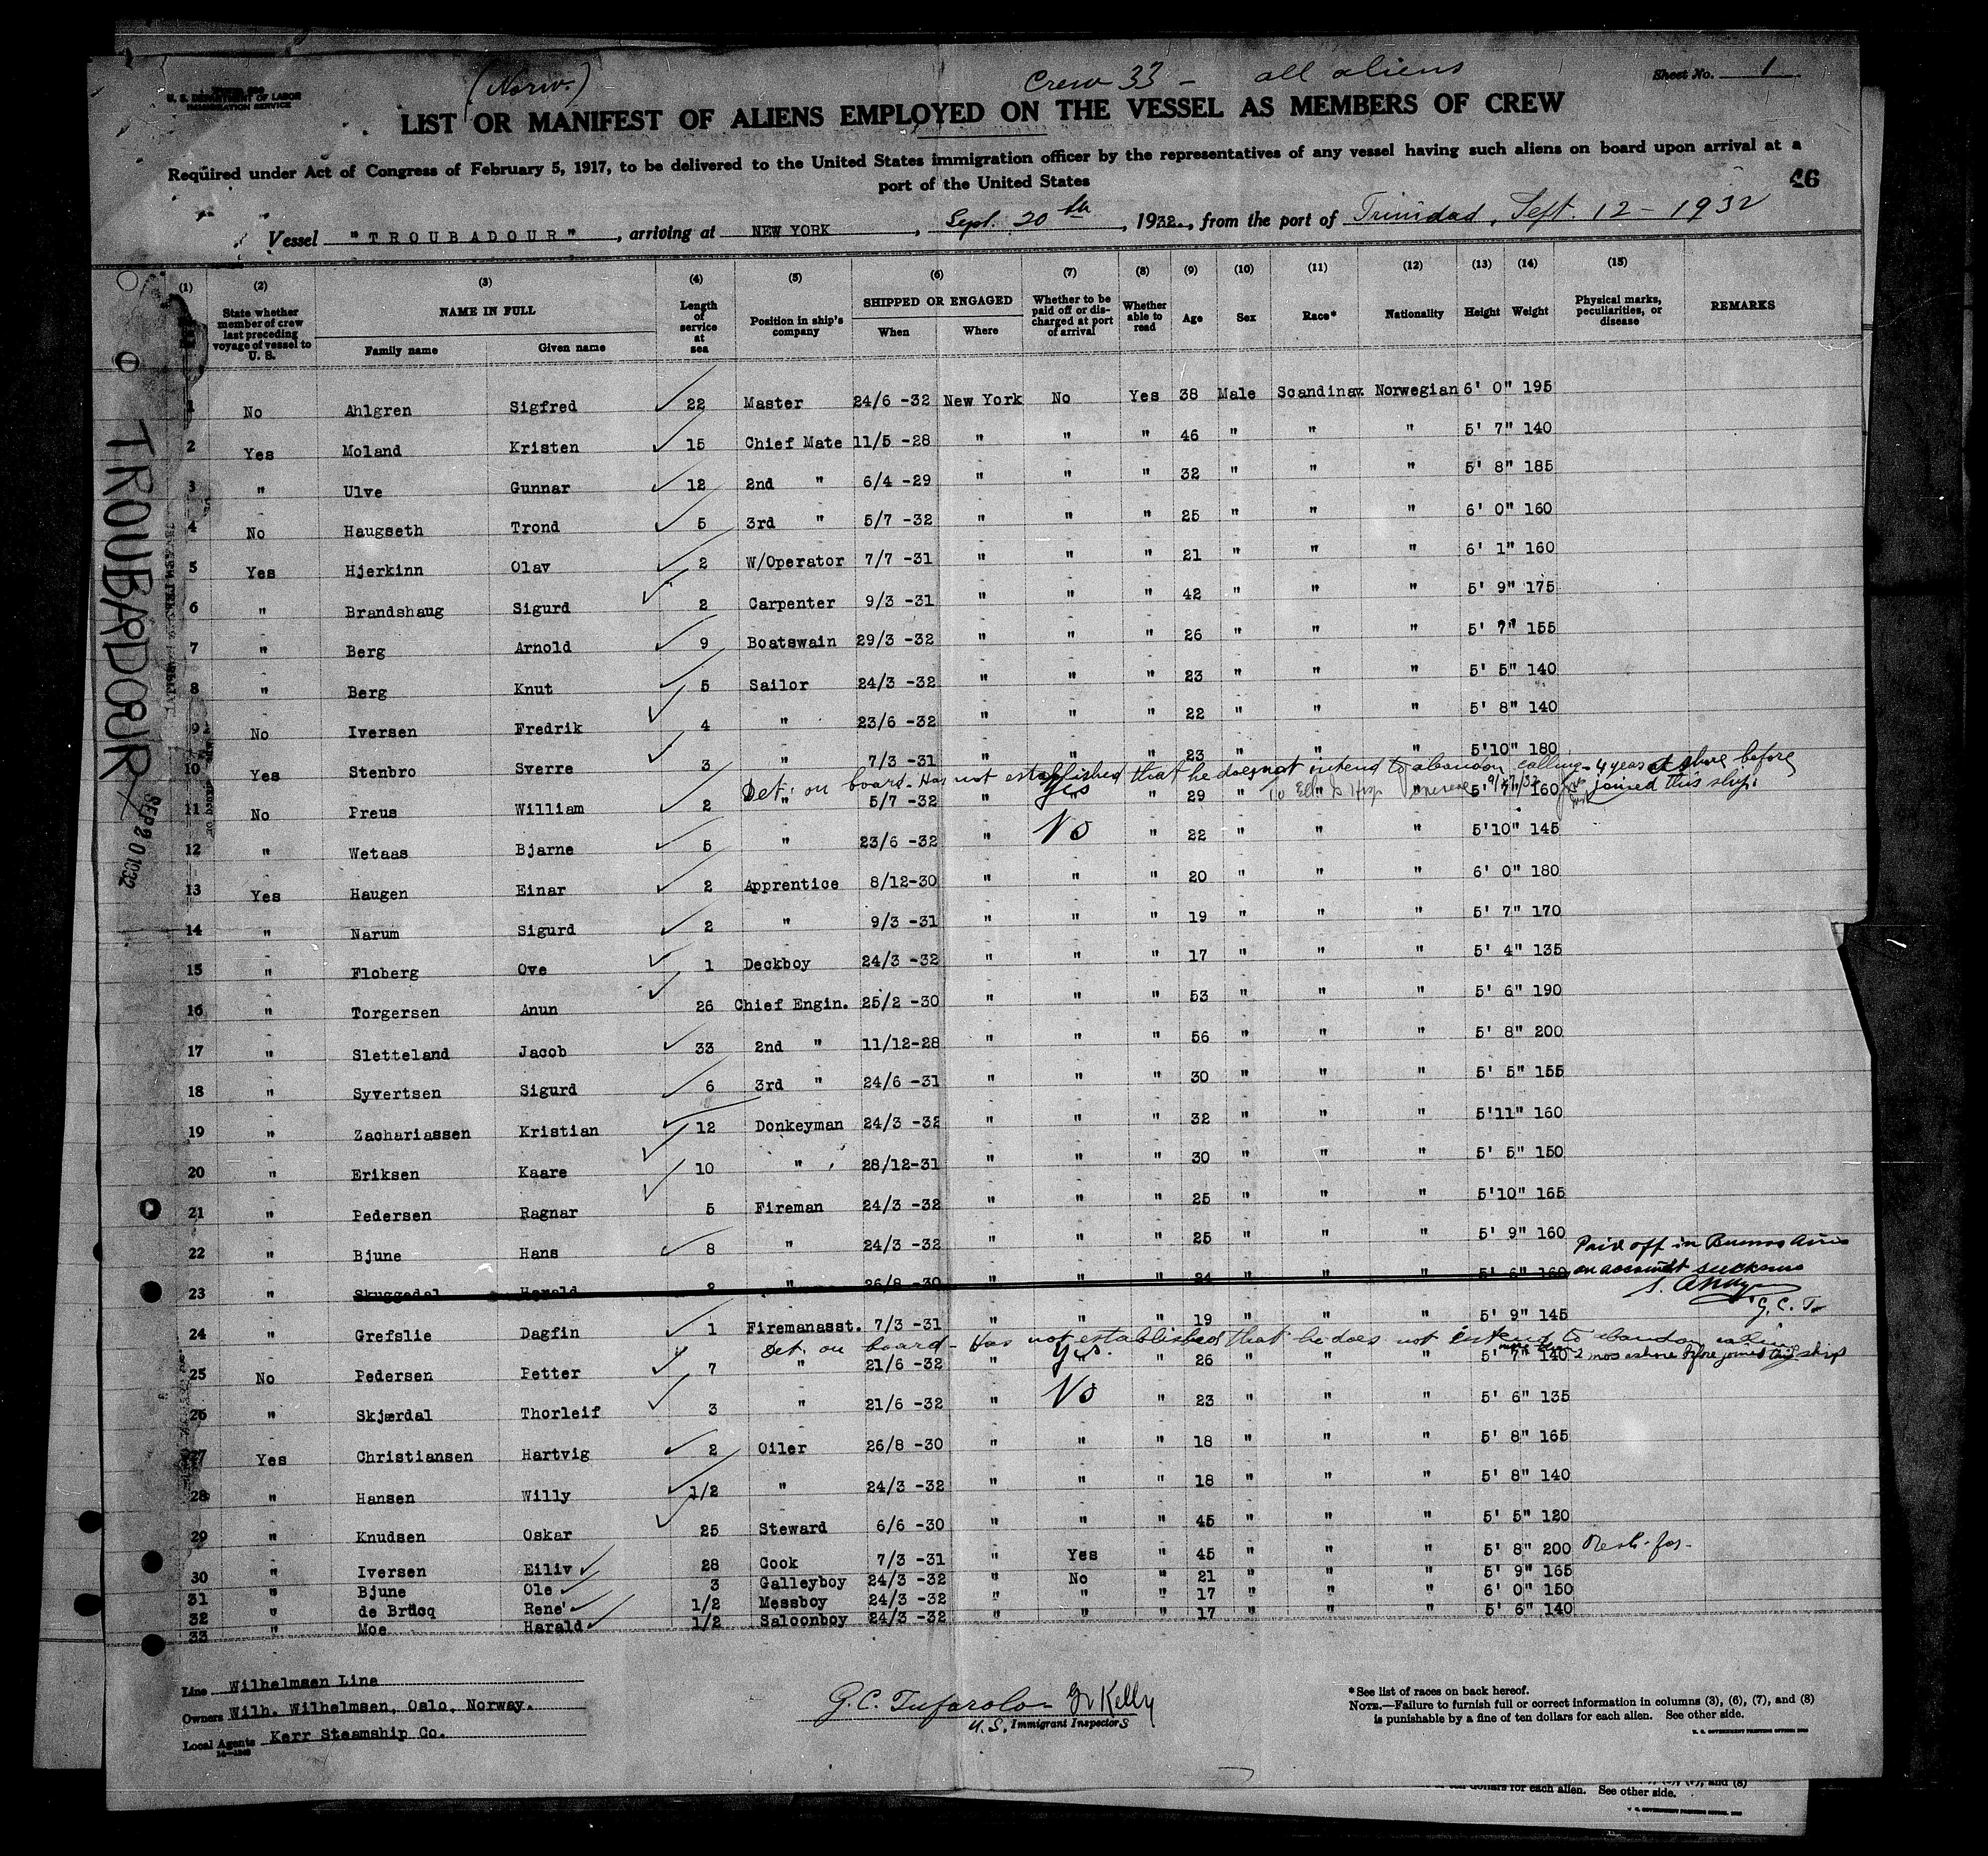 (Norw.)
Crew 33 - all aliens
Sheet No. 1
U. S. DEPARTMENT OF LABOR
IMMIGRATION SERVICE
LIST OR MANIFEST OF ALIENS EMPLOYED ON THE VESSEL AS MEMBERS OF CREW
Required under Act of Congress of February 5, 1917, to be delivered to the United States immigration officer by the representatives of any vessel having such aliens on board upon arrival at a
port of the United States
46
Vessel "TROUBADOUR", arriving at NEW YORK, Sept. 20th, 1932, from the port of Trinidad, Sept. 12 - 1932
(1) (2) (3) (4) (5) (6) (7) (8) (9) (10) (11) (12) (13) (14) (15)
State whether member of crew last preceding voyage of vessel to U. S. NAME IN FULL Family name Given name Length of service at sea Position in ship's company SHIPPED OR ENGAGED When Where Whether to be paid off or discharged at port of arrival Whether able to read Age Sex Race* Nationality Height Weight Physical marks, peculiarities, or disease REMARKS
1 No Ahlgren Sigfred 22 Master 24/6 -32 New York No Yes 38 Male Scandinav. Norwegian 6' 0" 195
2 Yes Moland Kristen 15 Chief Mate 11/5 -28 " " " 46 " " " 5' 7" 140
3 " Ulve Gunnar 12 2nd " 6/4 -29 " " " 32 " " " 5' 8" 185
4 No Haugseth Trond 5 3rd " 5/7 -32 " " " 25 " " " 6' 0" 160
5 Yes Hjerkinn Olav 2 W/Operator 7/7 -31 " " " 21 " " " 6' 1" 160
6 " Brandshaug Sigurd 2 Carpenter 9/3 -31 " " " 42 " " " 5' 9" 175
7 " Berg Arnold 9 Boatswain 29/3 -32 " " " 26 " " " 5' 7" 155
8 " Berg Knut 5 Sailor 24/3 -32 " " " 23 " " " 5' 5" 140
9 No Iversen Fredrik 4 " 23/6 -32 " " " 22 " " " 5' 8" 140
10 Yes Stenbro Sverre 3 " 7/3 -31 " " " 23 " " " 5'10" 180
Det. on board. Has not established that he does not intend to abandon calling - 4 years at shore before
joined this ship.
11 No Preus William 2 " 5/7 -32 " Yes " 29 " " " 5' 7" 160
12 " Wetaas Bjarne 5 " 23/6 -32 " No " 22 " " " 5'10" 145
13 Yes Haugen Einar 2 Apprentice 8/12-30 " " " 20 " " " 6' 0" 180
14 " Narum Sigurd 2 " 9/3 -31 " " " 19 " " " 5' 7" 170
15 " Floberg Ove 1 Deckboy 24/3 -32 " " " 17 " " " 5' 4" 135
16 " Torgersen Anun 26 Chief Engin. 25/2 -30 " " " 53 " " " 5' 6" 190
17 " Sletteland Jacob 33 2nd " 11/12-28 " " " 56 " " " 5' 8" 200
18 " Syvertsen Sigurd 6 3rd " 24/6 -31 " " " 30 " " " 5' 5" 155
19 " Zachariassen Kristian 12 Donkeyman 24/3 -32 " " " 32 " " " 5'11" 160
20 " Eriksen Kaare 10 " 28/12-31 " " " 30 " " " 5' 5" 150
21 " Pedersen Ragnar 5 Fireman 24/3 -32 " " " 25 " " " 5'10" 165
22 " Bjune Hans 8 " 24/3 -32 " " " 25 " " " 5' 9" 160
Paid off in Buenos Aires
on account sickness
23 " Skuggedal Harald 2 " 26/8 -30 " " " 24 " " " 5' 6" 160
G. C. T.
24 " Grefslie Dagfin 1 Firemanasst. 7/3 -31 " " " 19 " " " 5' 9" 145
Det. on board - Has not established that he does not intend to abandon calling
more than 2 mos ashore before joined this ship
25 No Pedersen Petter 7 " 21/6 -32 " Yes. " 26 " " " 5' 7" 140
26 " Skjærdal Thorleif 3 " 21/6 -32 " No " 23 " " " 5' 6" 135
27 Yes Christiansen Hartvig 2 Oiler 26/8 -30 " " " 18 " " " 5' 8" 165
28 " Hansen Willy 1/2 " 24/3 -32 " " " 18 " " " 5' 8" 140
29 " Knudsen Oskar 25 Steward 6/6 -30 " " " 45 " " " 5' 5" 120
30 " Iversen Eiliv 28 Cook 7/3 -31 " Yes " 45 " " " 5' 8" 200
31 " Bjune Ole 3 Galleyboy 24/3 -32 " No " 21 " " " 5' 9" 165
32 " de Brücq Rene' 1/2 Messboy 24/3 -32 " " " 17 " " " 6' 0" 150
33 " Moe Harald 1/2 Saloonboy 24/3 -32 " " " 17 " " " 5' 6" 140
TROUBADOUR
SEP 20 1932
Line Wilhelmsen Line
Owners Wilh. Wilhelmsen, Oslo, Norway.
Local Agents Kerr Steamship Co.
G. C. Tufarolo - Kelly
U.S. Immigrant Inspectors
*See list of races on back hereof.
NOTE.—Failure to furnish full or correct information in columns (3), (6), (7), and (8)
is punishable by a fine of ten dollars for each alien. See other side.
U. S. GOVERNMENT PRINTING OFFICE
ten dollars for each alien. See other side.
U. S. GOVERNMENT PRINTING OFFICE